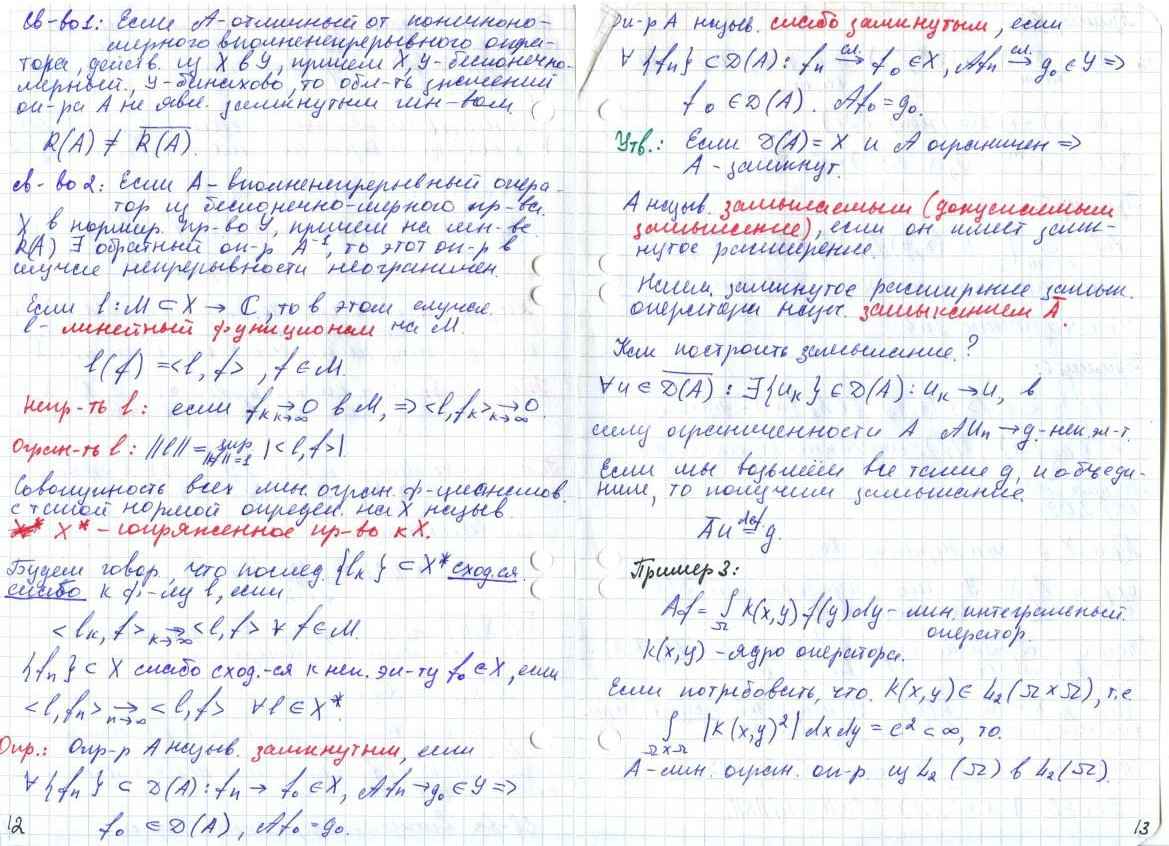 св-во 1: Если A-отличный от конечноно-
мерного вполненепрерывного опера-
тора, действ. из X в Y, причем X, Y-бесконечно-
мерный, Y-банахово, то обл-ть значений
оп-ра A не явл. замкнутым мн-вом.
R(A) ≠ \overline{R(A)}.
св-во 2: Если A - вполненепрерывный опера-
тор из бесконечно-мерного пр-ва
X в нормир. пр-во Y, причем на мн-ве
R(A) ∃ обратный оп-р A⁻¹, то этот оп-р в
случае непрерывности неограничен.
Если l: M ⊂ X → ℂ, то в этом случае
l - линейный функционал на M.
l(f) = <l, f>, f ∈ M.
Непр-ть l: если f_k →_{k→∞} 0 в M, => <l, f_k> →_{k→∞} 0.
Огран-ть l: ||l|| = sup_{||f||=1} |<l, f>|.
Совокупность всех лин. огран. ф-ционалов
с такой нормой определ. на X назыв
X* - сопряженное пр-во к X.
Будем говор., что послед. {l_k} ⊂ X* сход.ся
слабо к ф-лу l, если
<l_k, f> →_{k→∞} <l, f> ∀ f ∈ M.
{f_n} ⊂ X слабо сход.-ся к нек. эл-ту f₀ ∈ X, если
<l, f_n> →_{n→∞} <l, f> ∀ l ∈ X*.
Опр.: Опр-р A назыв. замкнутым, если
∀ {f_n} ⊂ D(A): f_n → f₀ ∈ X, Af_n → g₀ ∈ Y =>
f₀ ∈ D(A), Af₀ = g₀.
12
Оп-р A назыв. слабо замкнутым, если
∀ {f_n} ⊂ D(A): f_n →^{сл.} f₀ ∈ X, Af_n →^{сл.} g₀ ∈ Y =>
f₀ ∈ D(A). Af₀ = g₀.
Утв.: Если D(A) = X и A ограничен =>
A - замкнут.
A назыв. замыкаемым (допускаемым
замыкание), если он имеет замк-
нутое расширение.
Наим. замкнутое расширение замык.
оператора назут. замыканием \overline{A}.
Как построить замыкание?
∀ u ∈ \overline{D(A)}: ∃ {u_k} ∈ D(A): u_k → u, в
силу ограниченности A Au_n → g - нек эл-т.
Если мы возьмём все такие g, и объеди-
ним, то получим замыкание.
\overline{A}u =^{def} g.
Пример 3:
Af = ∫_Ω K(x,y) f(y) dy - лин. интегральный
оператор.
K(x,y) - ядро оператора.
Если потребовать, что K(x,y) ∈ L₂(Ω×Ω), т.е
∫_{Ω×Ω} |K(x,y)²| dx dy = c² < ∞, то
A - лин. огран. оп-р. из L₂(Ω) в L₂(Ω).
13